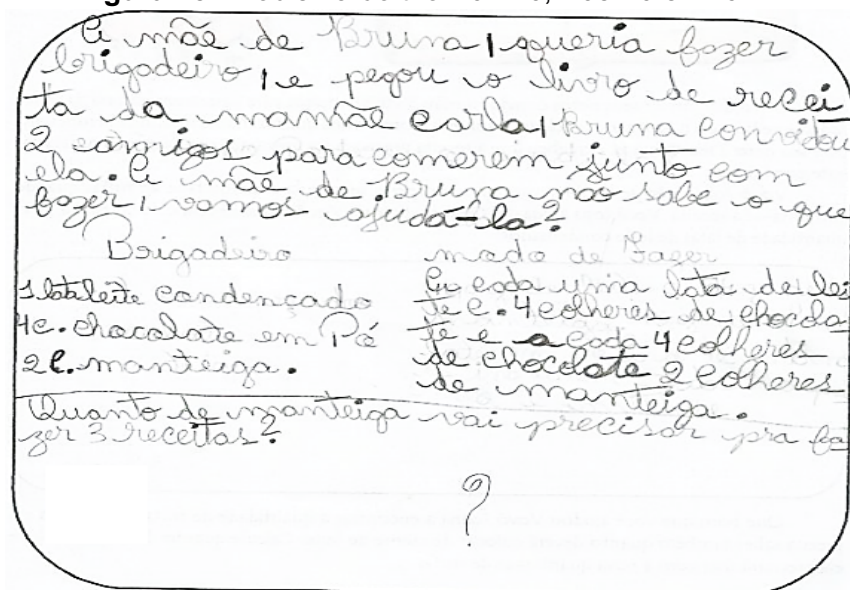 A mãe de Bruna, queria fazer
brigadeiro, e pegou o livro de recei
ta da mamãe carla, Bruna convidou
2 amigos para comerem junto com
ela. A mãe de Bruna não sabe o que
fazer, vamos ajudá-la?
Brigadeiro
1 lata leite condençado
4 c. chocolate em Pó
2 c. manteiga.
modo de Fazer
A cada uma lata de lei
te c. 4 colheres de chocola
te e a cada 4 colheres
de chocolate 2 colheres
de manteiga.
Quanto de manteiga vai precisar pra fa
zer 3 receitas?
?